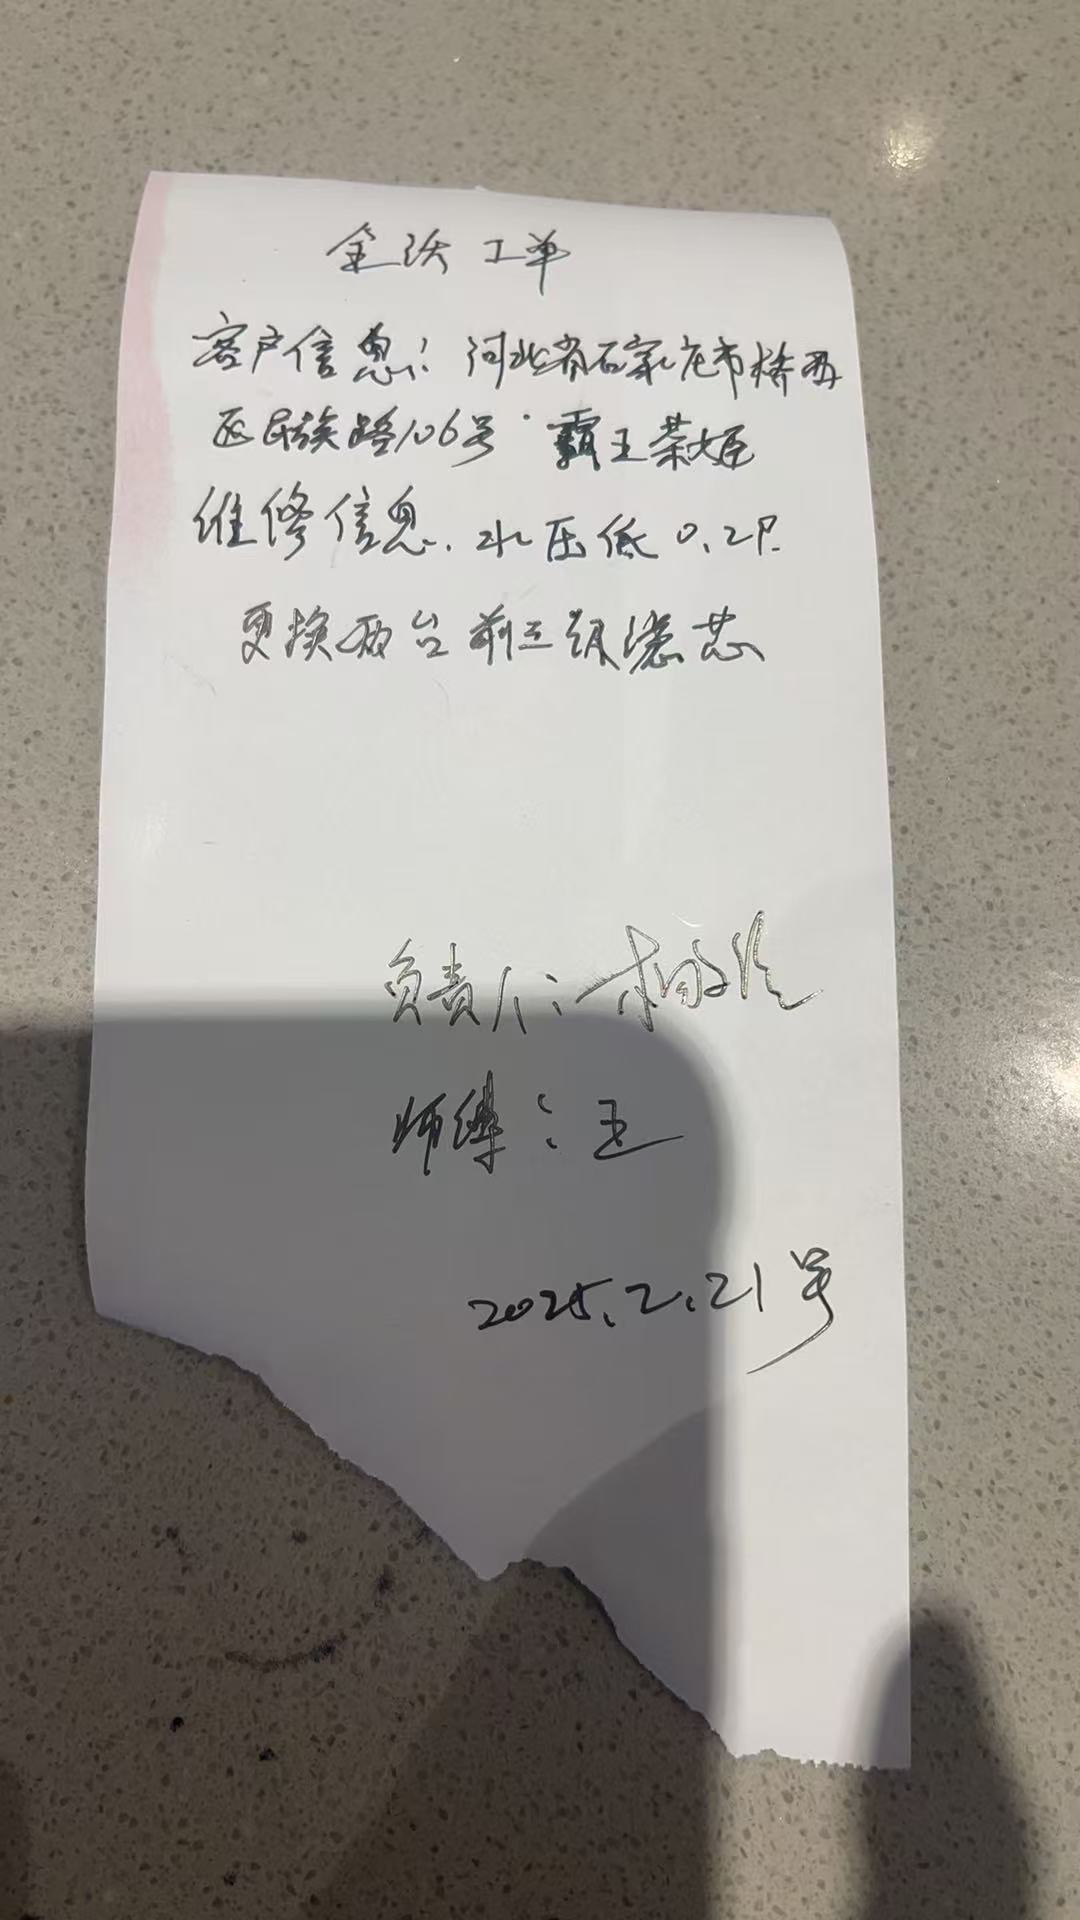 金沃 工单
客户信息：河北省石家庄市桥西
区民族路106号·霸王茶姬
维修信息、水压低0.2P.
更换两台前三级滤芯
负责人：
师傅：王
2025.2.21号